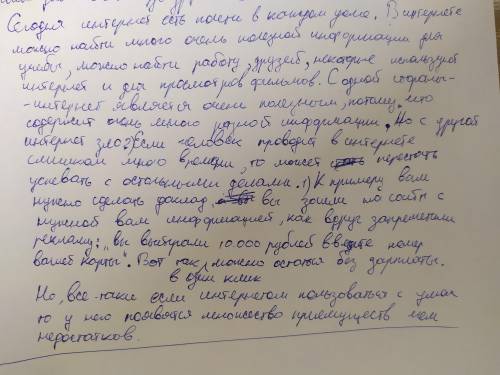 Сегодня интернет есть почти в каждом доме. В интернете
можно найти много очень полезной информации для
учебы, можно найти работу, друзей, некоторые используют
интернет и для просмотров фильмов. С одной стороны-
-интернет является очень полезным, потому что
содержит очень много разной информации. Но с другой
интернет зло?Если человек проводит в интернете
слишком много времени, то может перестать
успевать с остальными делами. 1) К примеру вам
нужно сделать доклад, вы зашли на сайт с
нужной вам информацией, как вдруг
рекламу: "вы выиграли 10.000 рублей введите номер
вашей карты". Вот так, можно остаться без зарплаты.
в один клик
Но, все-таки если интернетом пользоваться с умом
то у него появятся множество приемуществ чем
недостатков.